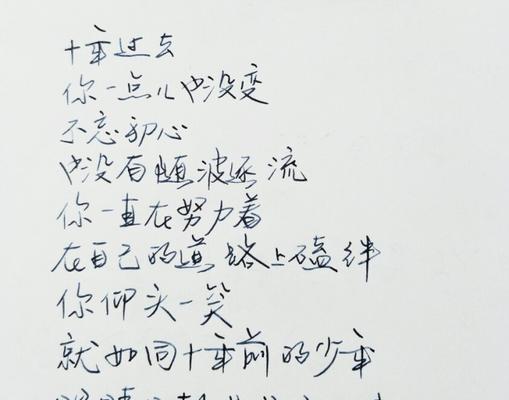 十年过去
你一点儿也没变
不忘初心
也没有随波逐流
你一直在努力着
在自己的道路上磕绊
你仰头一笑
就如同十年前的少年